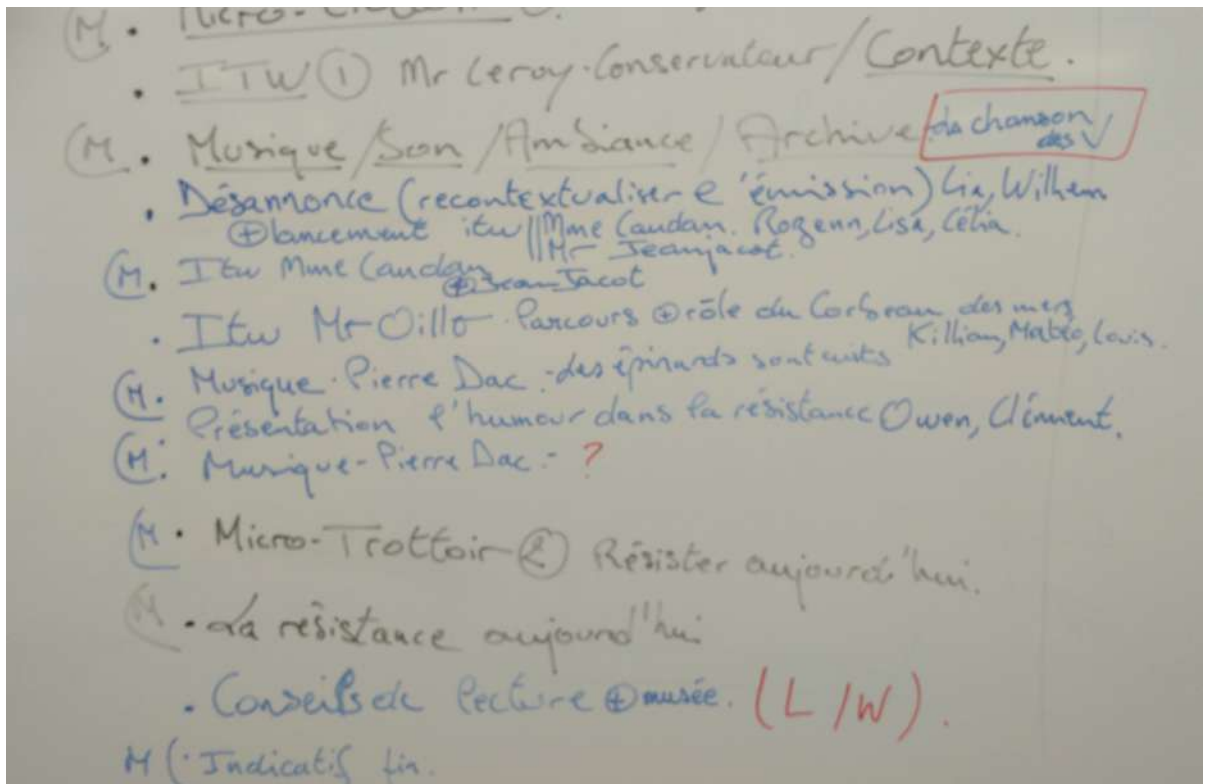 (M. Micro-
. ITW ① Mr Leroy. Conservateur / Contexte.
(M. Musique / Son / Ambiance / Archive. La chanson
des V
. Désannonce (recontextualiser l'émission) Lia, Wilhem
⊕ lancement itw || Mme Caudan. Rozenn, Lisa, Célia.
Mr Jeanjacot.
(M. Itw Mme Caudan
⊕ Jean Jacot
. Itw Mr Oillo Parcours ⊕ rôle du Corbeau des mers
Killian, Matéo, Louis.
(M. Musique. Pierre Dac. - les épinards sont cuits
Présentation l'humour dans la résistance Owen, Clément.
(M. Musique - Pierre Dac. - ?
(M. Micro-Trottoir ② Résister aujourd'hui.
(M. La résistance aujourd'hui
. Conseils de lecture ⊕ musée. (L/W).
M (. Indicatif fin.